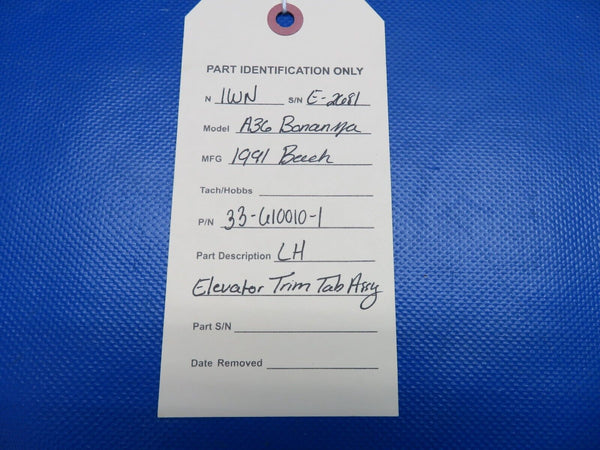 PART IDENTIFICATION ONLY
N 1WN S/N E-2681
Model A36 Bonanza
MFG 1991 Beech
Tach/Hobbs
P/N 33-610010-1
Part Description LH
Elevator Trim Tab Assy
Part S/N
Date Removed